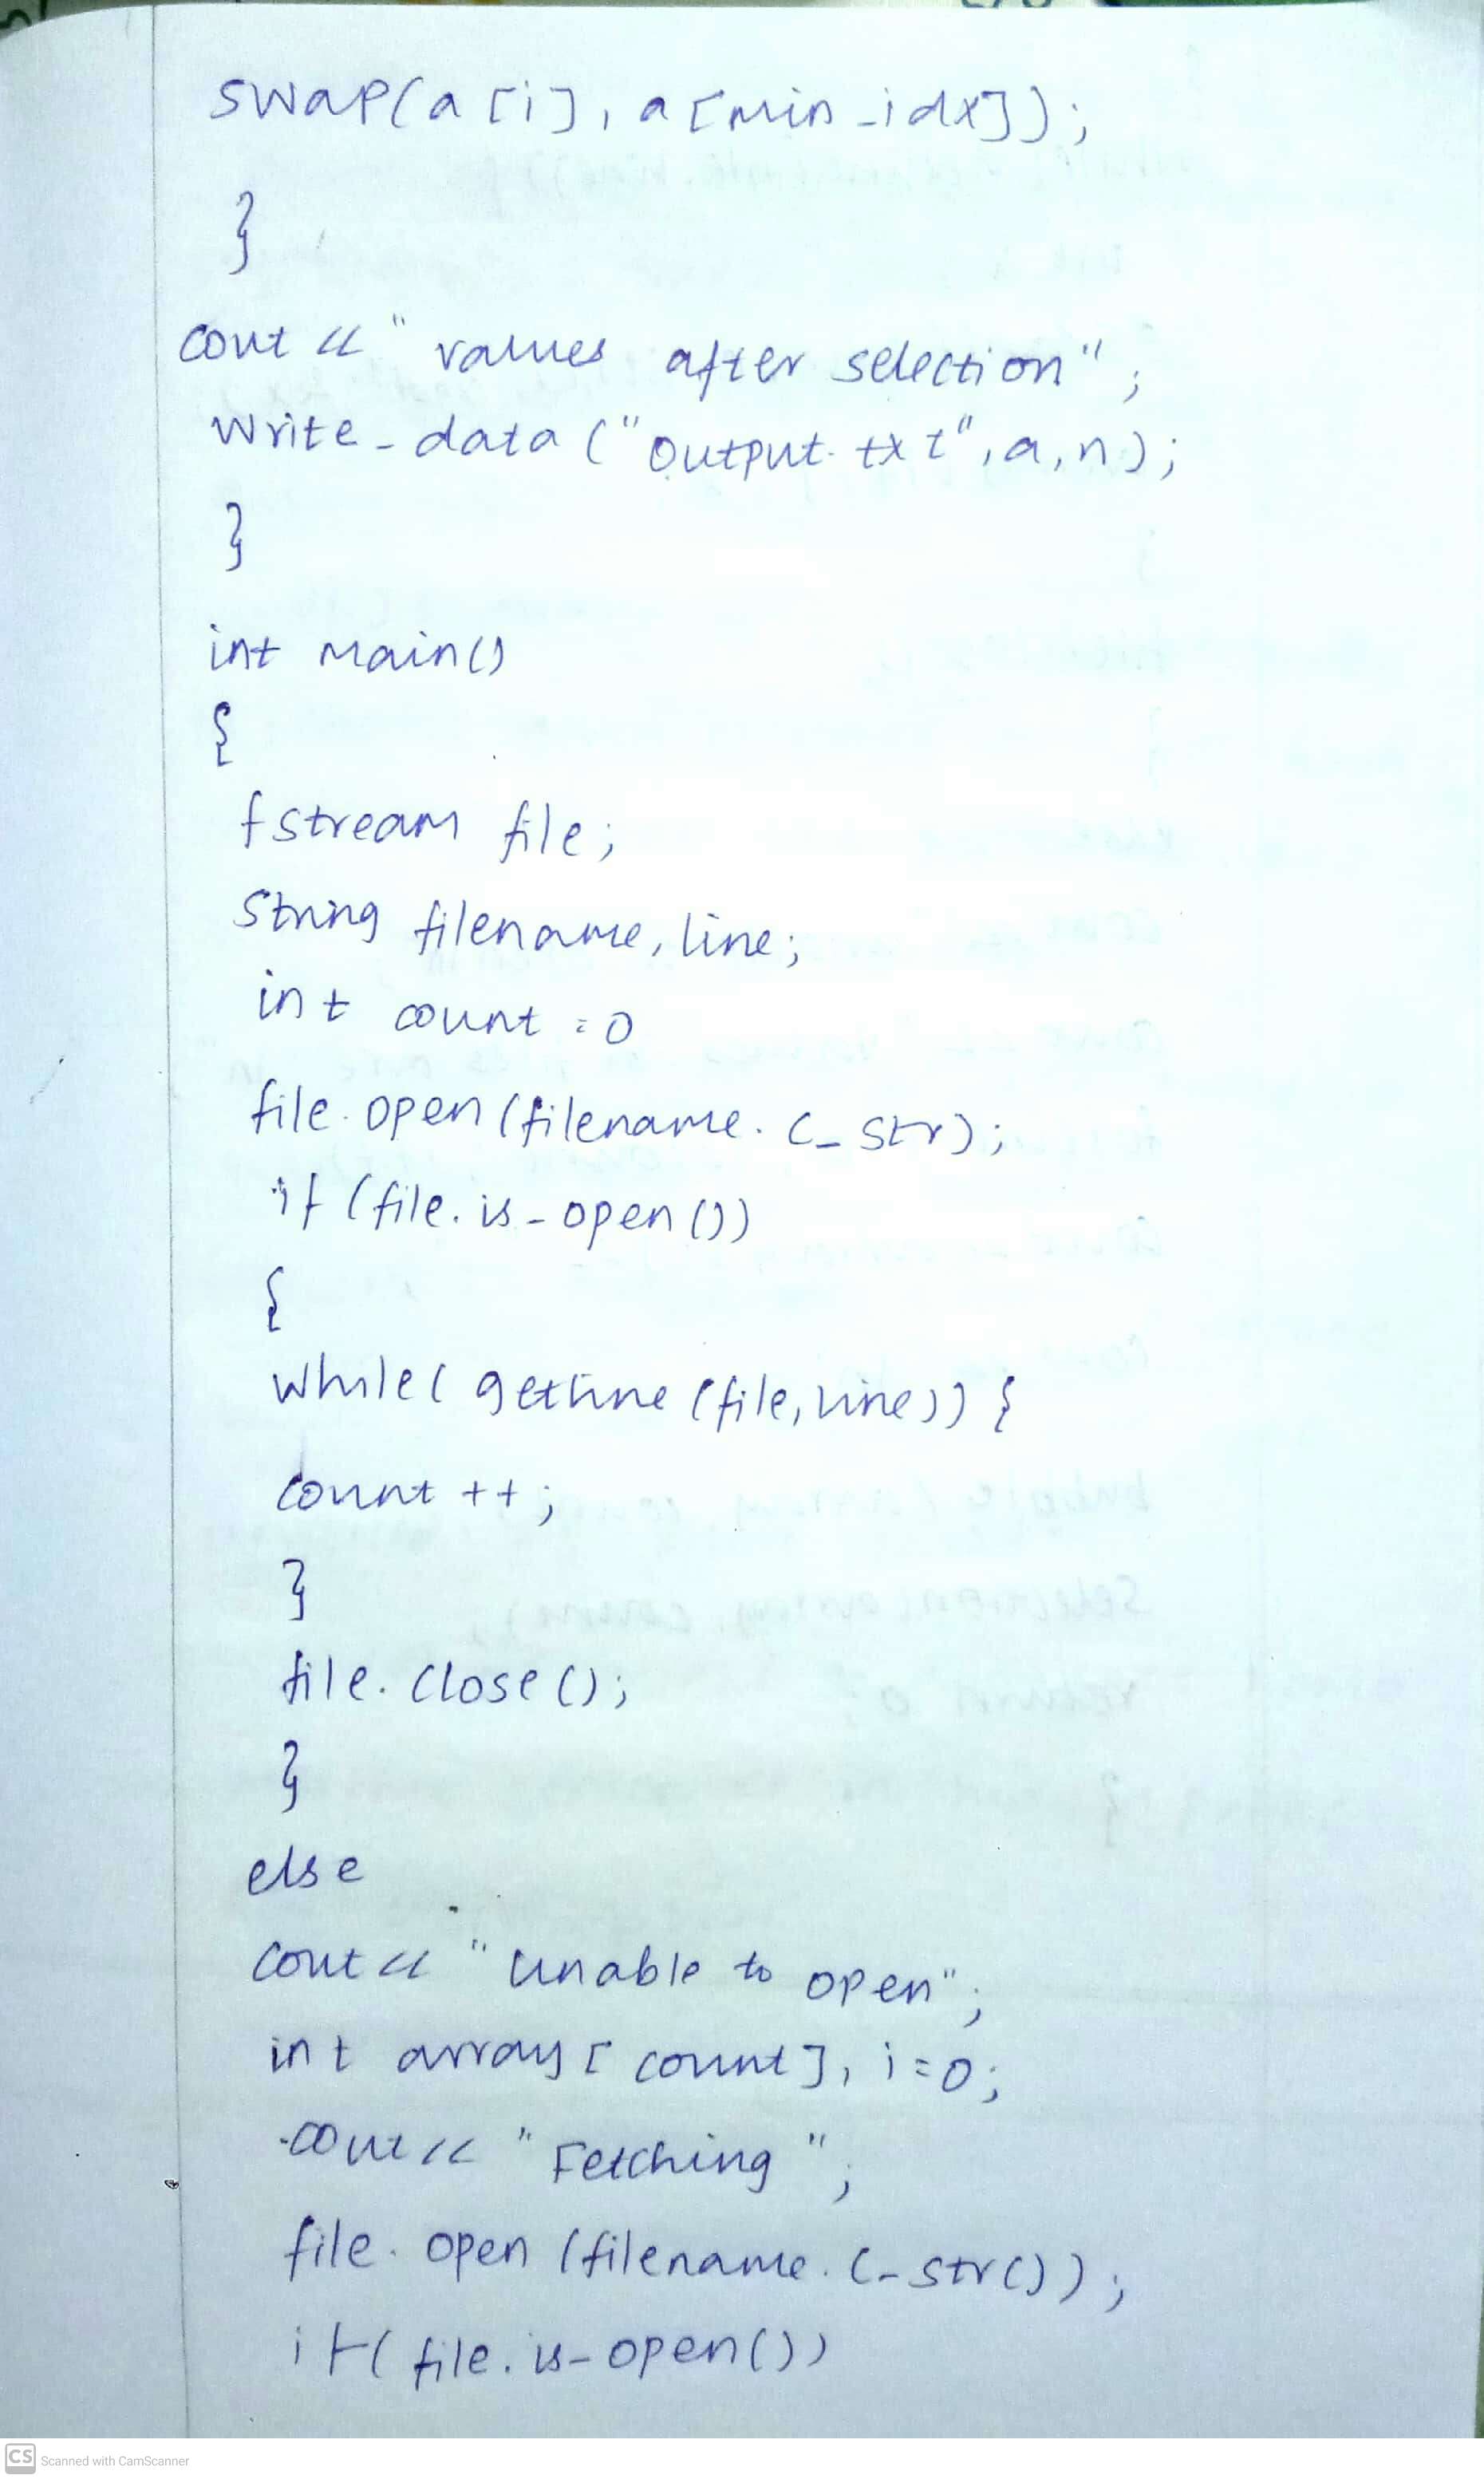 swap(a[i], a[min_idx]);
}
cout << " values after selection";
write_data ("Output.txt", a, n);
}
int main()
{
fstream file;
string filename, line;
int count = 0
file.open (filename.c_str);
if (file.is_open())
{
while( getline (file, line)) {
count ++;
}
file.close();
}
else
cout << "unable to open";
int array [ count], i=0;
cout << "Fetching";
file.open (filename.c_str());
if( file.is_open())
CS Scanned with CamScanner